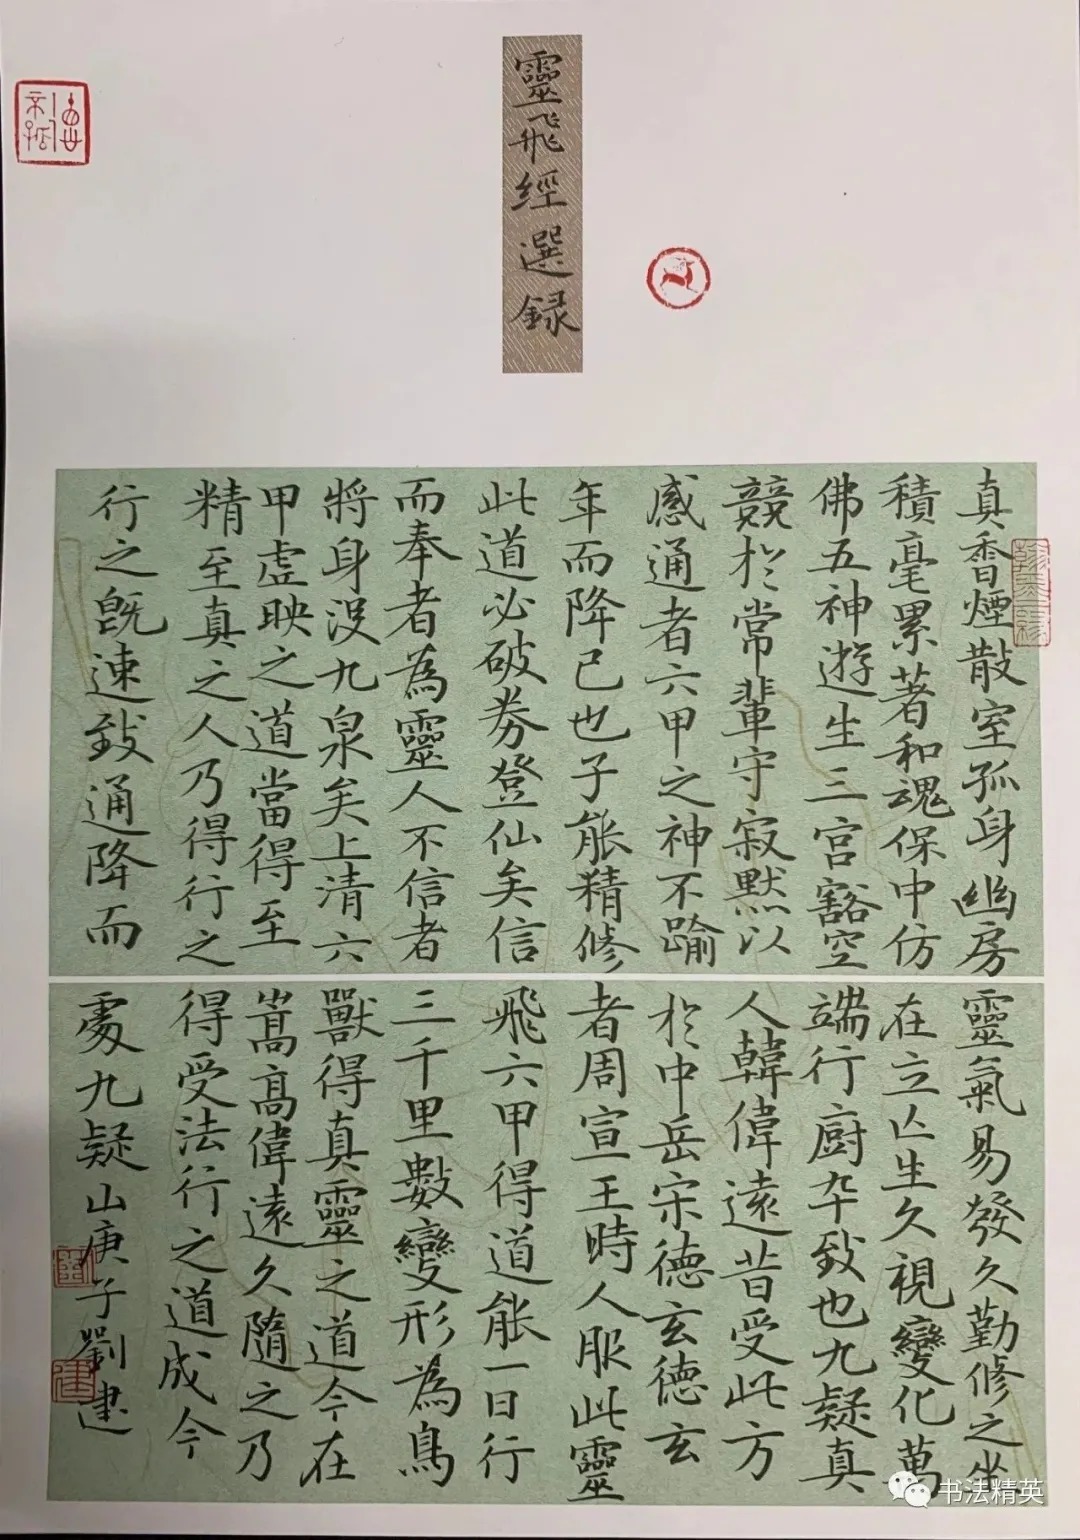 靈飛經選録
真香煙散室孤身幽房
積毫累著和魂保中仿
佛五神遊生三宮豁空
競於常輩守寂默以
感通者六甲之神不踰
年而降已也子能精修
此道必破券登仙矣信
而奉者為靈人不信者
將身没九泉矣上清六
甲虛映之道當得至
精至真之人乃得行之
行之既速致通降而
靈氣易發久勤修之坐
在立亡生久視變化萬
端行廚卒致也九疑真
人韓偉遠昔受此方
於中岳宋德玄德玄
者周宣王時人服此靈
飛六甲得道能一日行
三千里數變形為鳥
獸得真靈之道今在
嵩高偉遠久隨之乃
得受法行之道成今
處九疑山庚子劉建
书法精英